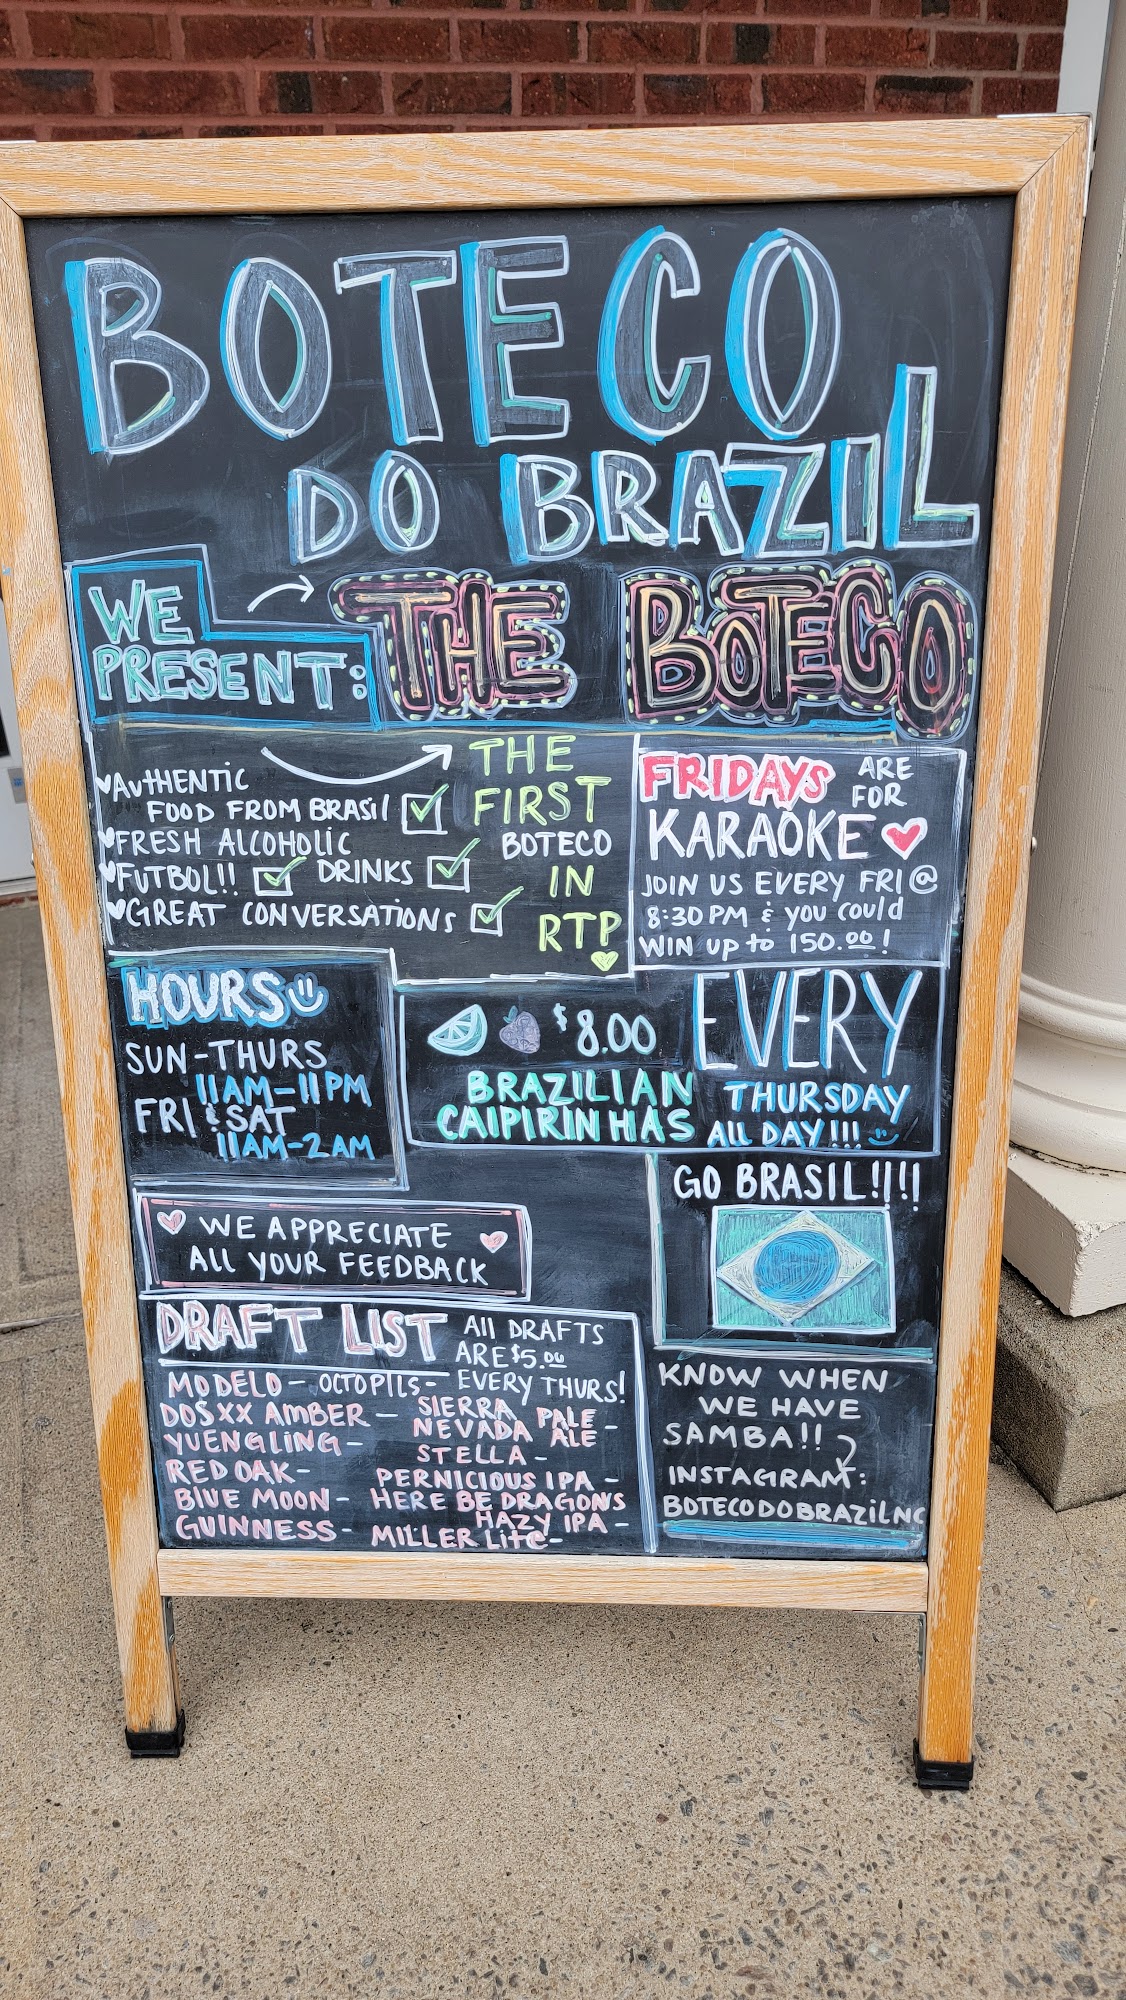 BOTECO
DO BRAZIL
WE
PRESENT:
THE BOTECO
AUTHENTIC
FOOD FROM BRASIL
FRESH ALCOHOLIC
DRINKS
FUTBOL!!
GREAT CONVERSATIONS
THE
FIRST
BOTECO
IN
RTP
FRIDAYS ARE
FOR
KARAOKE
JOIN US EVERY FRI @
8:30 PM & YOU COULD
WIN UP TO 150.00!
HOURS
SUN-THURS
11AM-11PM
FRI & SAT
11AM-2AM
$8.00
BRAZILIAN
CAIPIRINHAS
EVERY
THURSDAY
ALL DAY!!!
GO BRASIL!!!!
WE APPRECIATE
ALL YOUR FEEDBACK
DRAFT LIST
All DRAFTS
ARE $5.00
EVERY THURS!
MODELO - OCTOPILS -
DOSXX AMBER - SIERRA PALE -
NEVADA ALE
YUENGLING -
STELLA -
RED OAK -
PERNICIOUS IPA -
BLUE MOON - HERE BE DRAGONS
HAZY IPA -
GUINNESS - MILLER LITE -
KNOW WHEN
WE HAVE
SAMBA!!
INSTAGRAM:
BOTECODOBRAZILNC